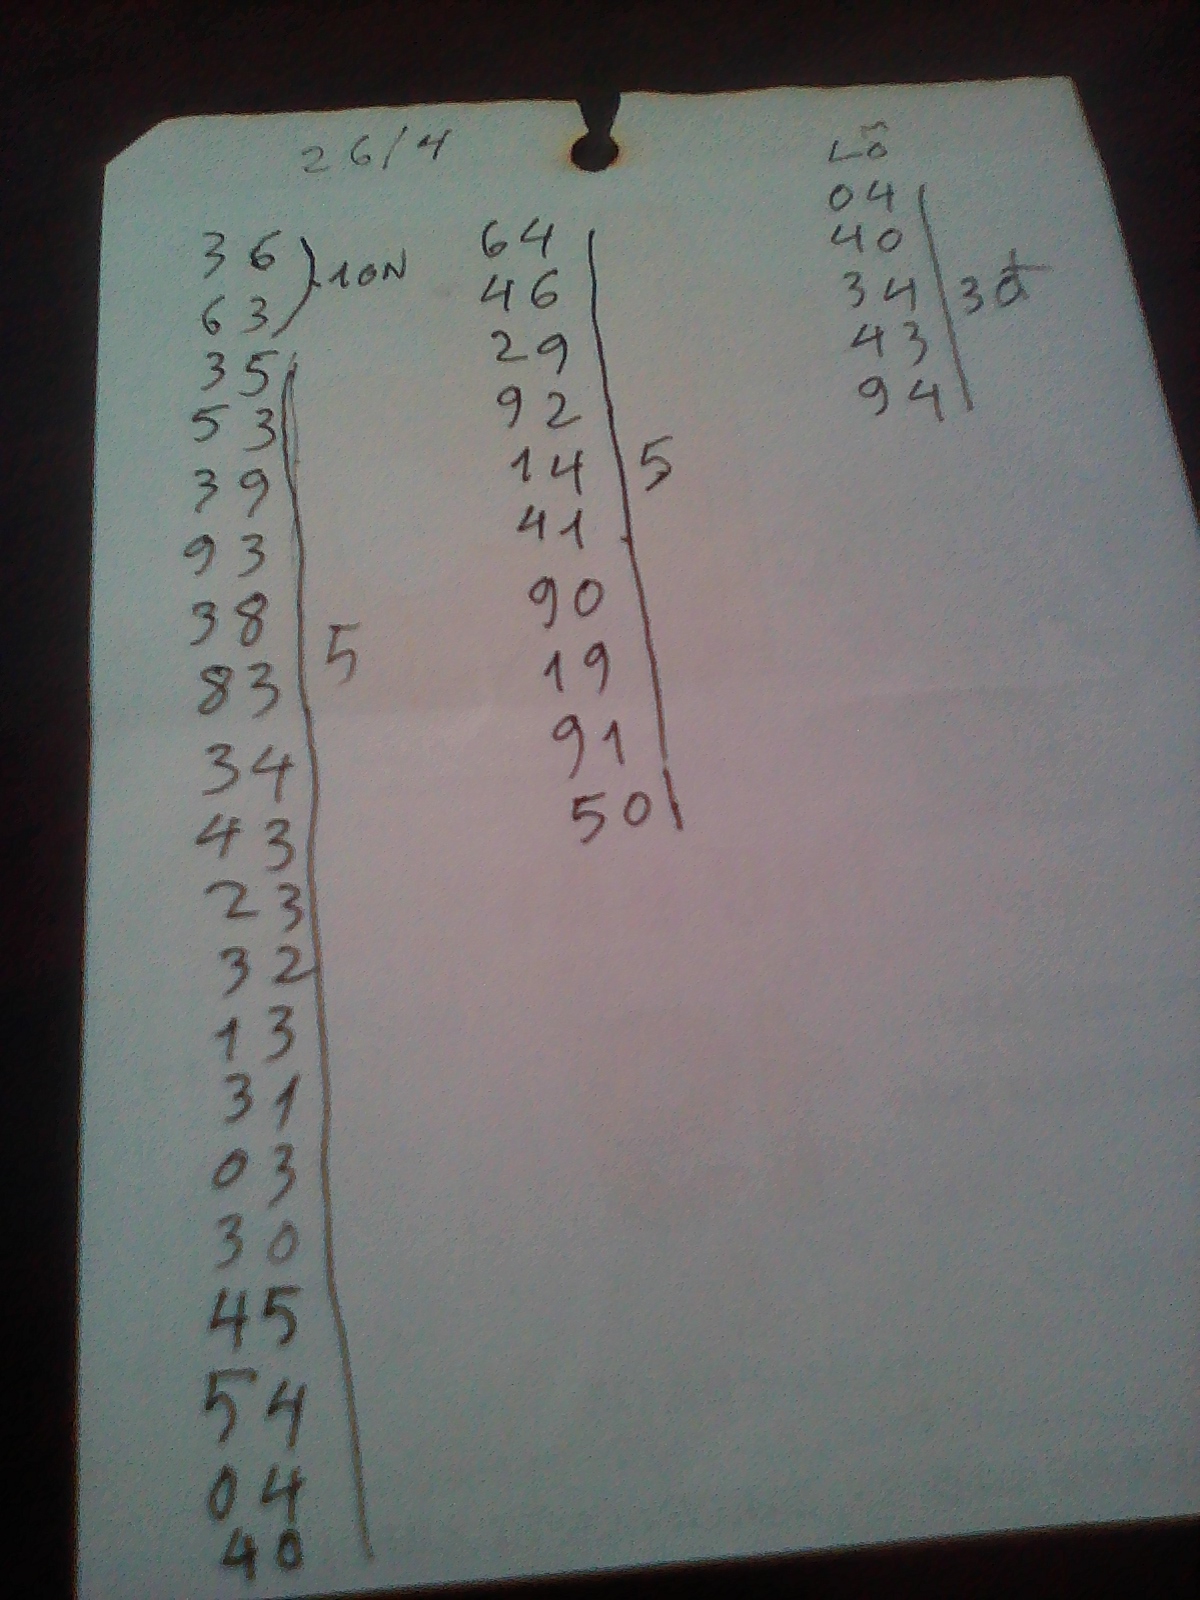 26/4
36
63
10N
35
53
39
93
38
83
34
43
23
32
13
31
03
30
45
54
04
40
5
64
46
29
92
14
41
90
19
91
50
5
Lô
04
40
34
43
94
30đ